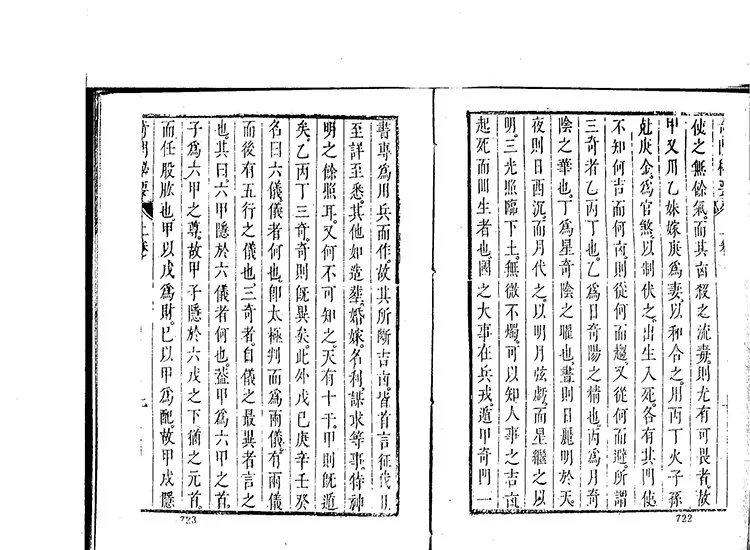 使之無餘氣而其凶殺之流毒則尤有可畏者故
甲又用乙妹嫁庚為妻以和合之用丙丁火子孫
尅庚金為官煞以制伏之出生入死各有其門使
不知何吉而何凶則從何而趨又從何而避所謂
三奇者乙丙丁也乙為日奇陽之精也丙為月奇
陰之華也丁為星奇陰之曜也晝則日麗明於天
夜則日西沉而月代之以明月弦虧而星繼之以
明三光照臨下土無微不燭可以知人事之吉凶
起死而回生者也國之大事在兵戎遁甲奇門一
722
書專為用兵而作故其所斷吉凶皆首言征伐且
至詳至悉其他如造葬婚嫁名利謀求等事特神
明之餘照耳又何不可知之天有十干甲則既遁
矣乙丙丁三奇奇則既異矣此外戊已庚辛壬癸
名曰六儀儀者何也卽太極判而為兩儀有兩儀
而後有五行之儀也三奇者自儀之最異者言之
也其曰六甲隱於六儀者何也葢甲為六甲之首
子為六甲之尊故甲子隱於六戊之下猶之元首
而任股肱也甲以戊為財巳以甲為配故甲戌隱
奇門秘要 上卷
723